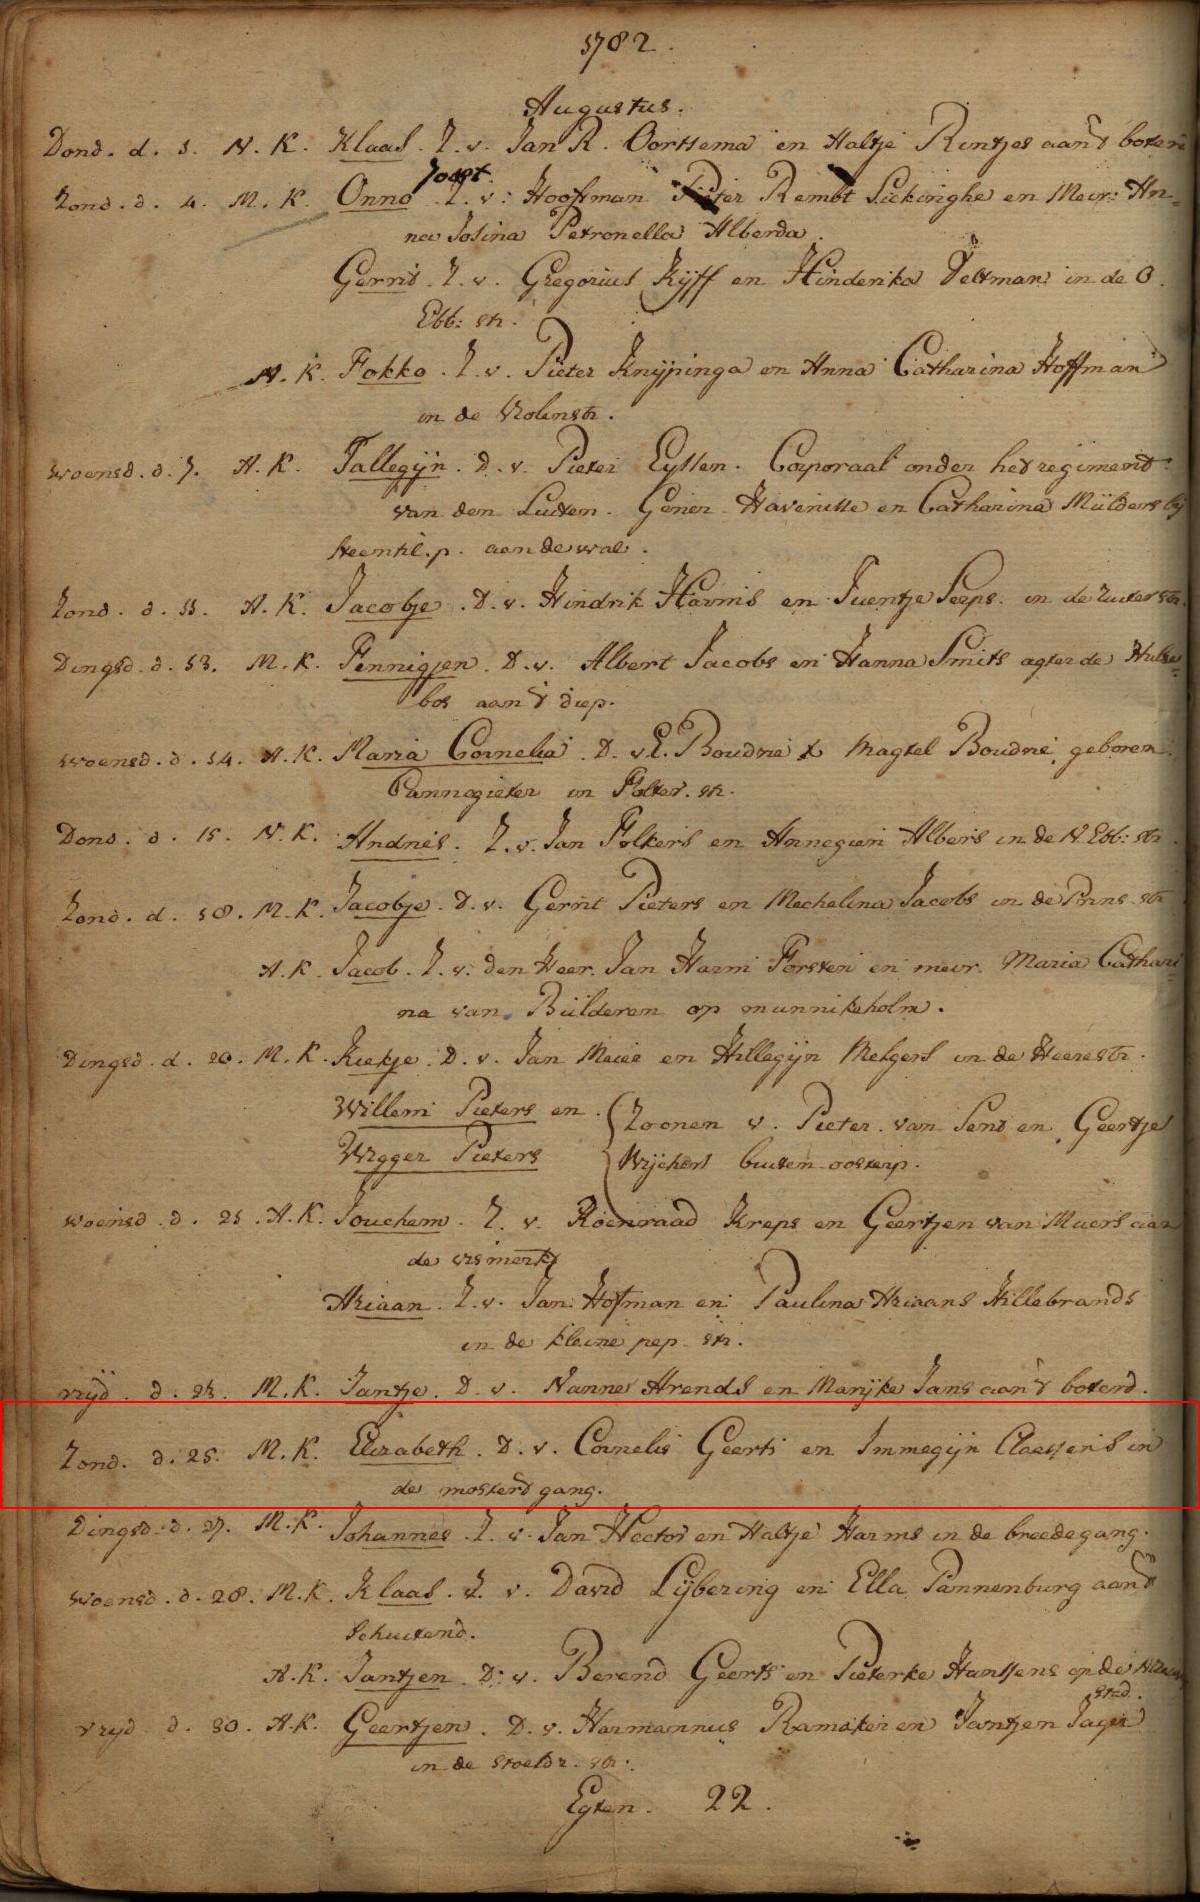 1782.
Augustus.
Dond. d. 1. N. K. Klaas. Z. v. Jan R. Oortsema en Haltje Rintjes aan't boter
Joost.
Zond. d. 4. M. K. Onno Z. v: Hoofman Pieter Rembt Sickinghe en Mevr: An-
na Josina Petronella Alberda.
Gerrit. Z. v. Gregorius Kijff en Hinderika Veltman in de O.
Ebb: str.
N. K. Fokko. Z. v. Pieter Knijpinga en Anna Catharina Hoffman
in de Molenstr.
Woensd. d. 7. A. K. Tallegijn. D. v. Pieter Eyssen. Corporaal onder het regiment
van den Luiten. Gener. Haverille en Catharina Mülders bij
steentil.p. aan de wal.
Zond. d. 11. A. K. Jacobje. D. v. Hindrik Harms en Tuentje Seeps. in de Zuiterstr.
Dingsd. d. 13. M. K. Fennigjen. D. v. Albert Jacobs en Hanna Smits agter de
bos aan't diep.
Woensd. d. 14. A. K. Maria Cornelia. D. v. L. Boudné & Magtel Boudné, geboren
Cannegieter in Folker. str.
Dond. d. 15. N. K. Andries. Z. v. Jan Folkers en Annegien Albers in de N. Ebb: str.
Zond. d. 18. M. K. Jacobje. D. v. Gerrit Pieters en Mechelina Jacobs in de Prins. str
A. K. Jacob. Z. v. den Heer. Jan Harm Forsten en mevr. Maria Cathari-
na van Bülderen op munnikeholm.
Dingsd. d. 20. M. K. Riekje. D. v. Jan Meier en Hillegijn Metgers in de Heerestr.
Willem Pieters en
Wigger Pieters
Zoonen v. Pieter van Send en Geertje
Wijchers buiten oosterp.
Woensd. d. 21. A. K. Jouchem. Z. v. Koenraad Kreps en Geertjen van Muers aan
de vismerkt
Ariaan. Z. v. Jan Hofman en Paulina Ariaans Hillebrands
in de kleine pep. str.
Vrijd. d. 23. M. K. Jantje. D. v. Nanne Arends en Marijke Jans aan't boterd.
Zond. d. 25. M. K. Elizabeth. D. v. Cornelis Geerts en Immegijn Claessens in
de mosterd gang.
Dingsd. d. 27. M. K. Johannes. Z. v. Jan Hector en Haltje Harms in de breedegang.
Woensd. d. 28. M. K. Klaas. Z. v. David Lijbering en Ella Pannenburg aan't
Schuitend.
A. K. Jantjen. D. v. Berend Geerts en Pieterke Hanssens op de Nieuw
stad.
Vrijd. d. 30. A. K. Geertjen. D. v. Harmannus Ramaker en Jantjen Jager
in de stoeldr. str.
Egten. 22.